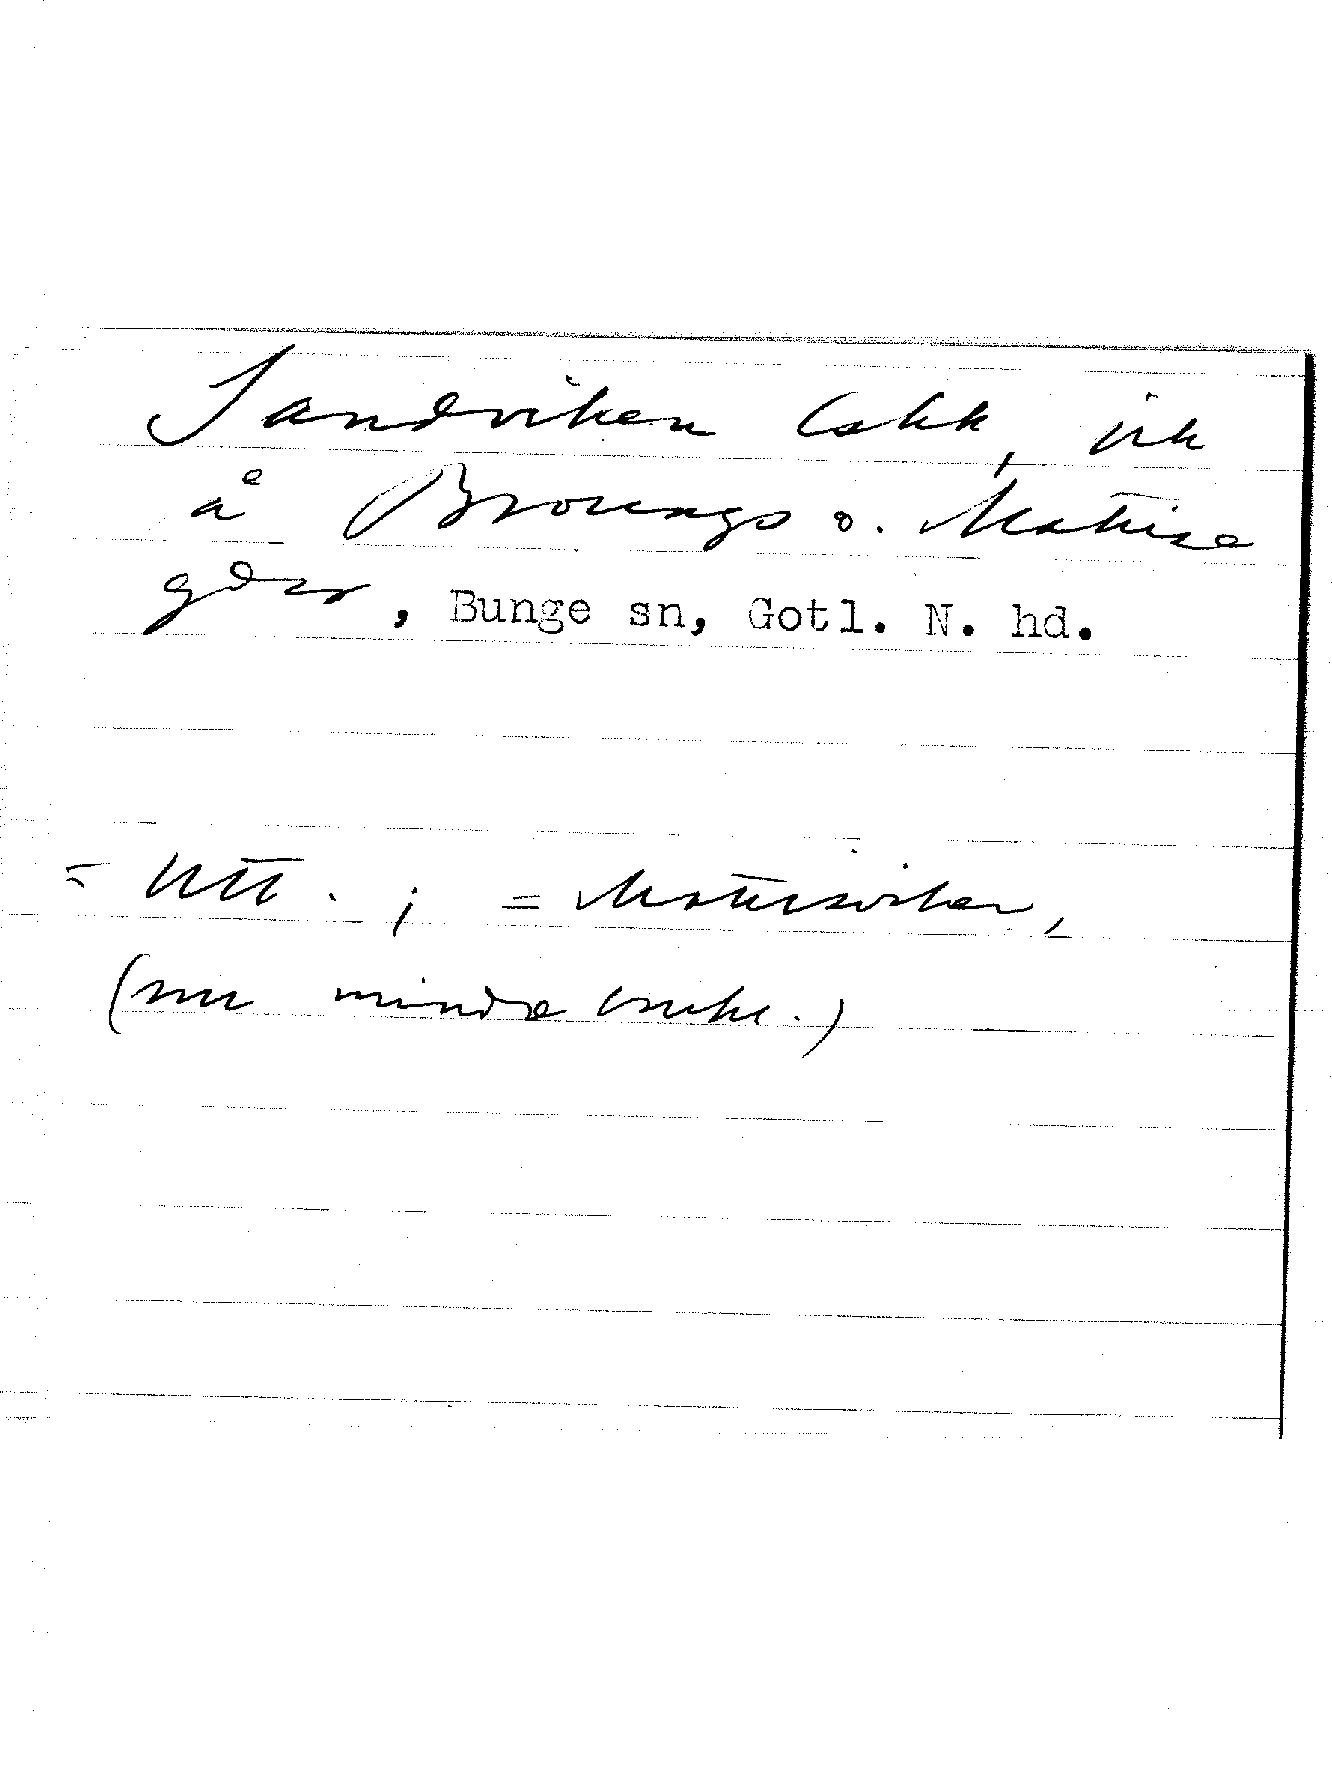 Sandviken Eskk, vik
å Broungs o. Mattise
gdar, Bunge sn, Gotl. N. hd.
= utt. ; = Mattisviken,
(nu mindre brukl.)